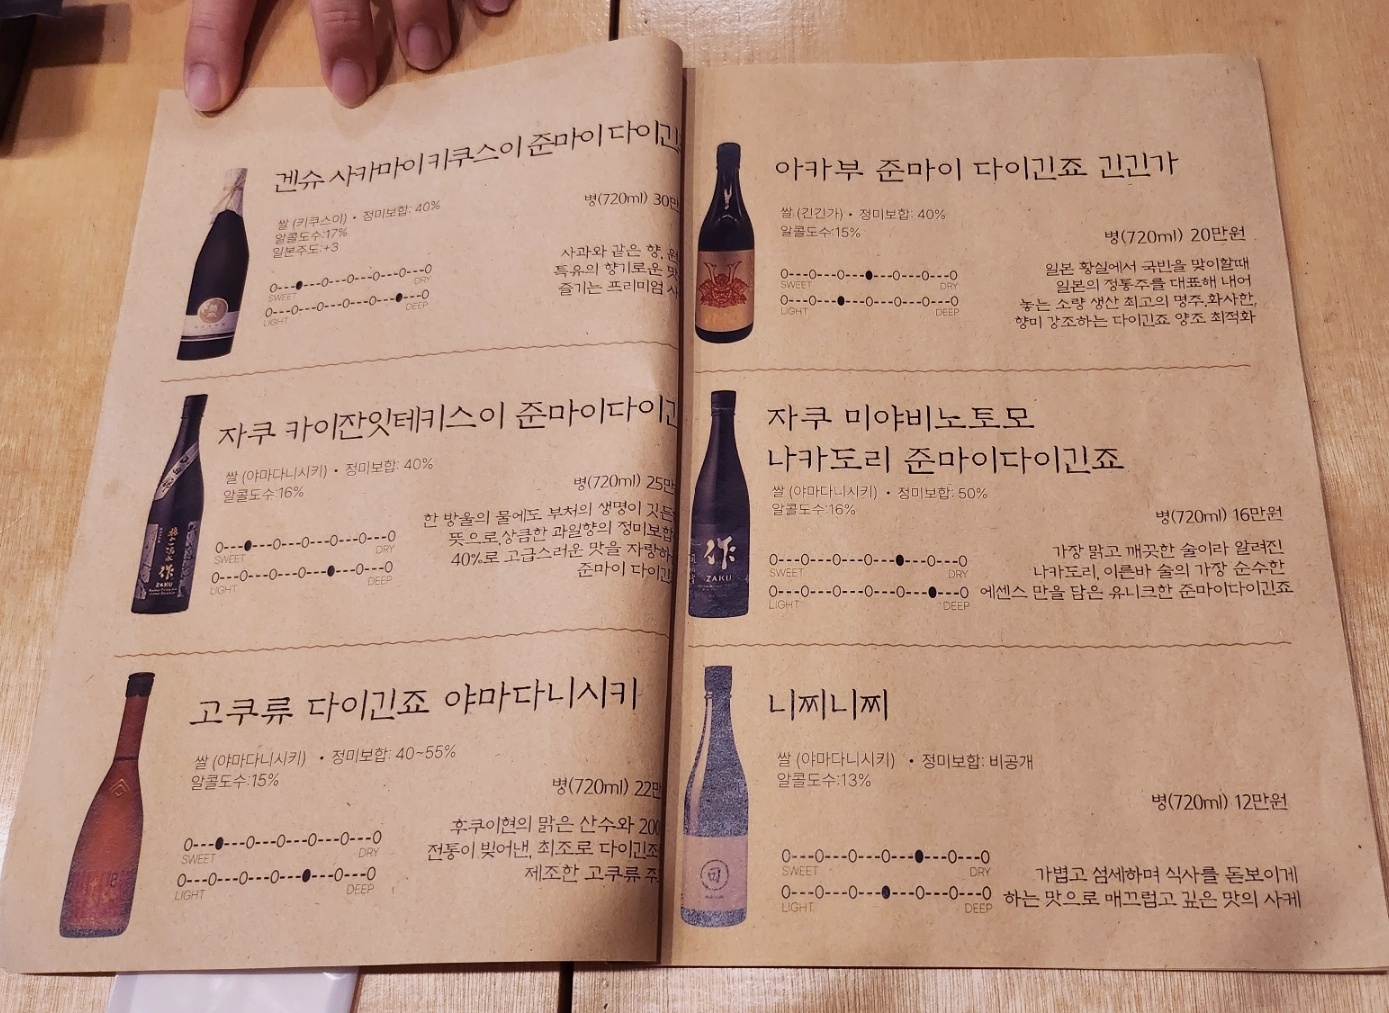 겐슈 사카마이 키쿠스이 준마이 다이긴
쌀 (키쿠스이) • 정미보합: 40%
알콜도수:17%
일본주도:+3
병(720ml) 30만
사과와 같은 향,
특유의 향기로운 맛
즐기는 프리미엄
SWEET DRY
LIGHT DEEP
자쿠 카이잔잇테키스이 준마이다이긴
쌀 (야마다니시키) • 정미보합: 40%
알콜도수:16%
병(720ml) 25만
한 방울의 물에도 부처의 생명이 깃든
뜻으로,상큼한 과일향의 정미보합
40%로 고급스러운 맛을 자랑하
준마이 다이긴
SWEET DRY
LIGHT DEEP
作
ZAKU
고쿠류 다이긴죠 야마다니시키
쌀 (야마다니시키) • 정미보합: 40~55%
알콜도수:15%
병(720ml) 22만
후쿠이현의 맑은 산수와 200
전통이 빚어낸, 최조로 다이긴죠
제조한 고쿠류 주
SWEET DRY
LIGHT DEEP
아카부 준마이 다이긴죠 긴긴가
쌀 (긴긴가) • 정미보합: 40%
알콜도수:15%
병(720ml) 20만원
일본 황실에서 국빈을 맞이할때
일본의 정통주를 대표해 내어
놓는 소량 생산 최고의 명주.화사한,
향미 강조하는 다이긴죠 양조 최적화
SWEET DRY
LIGHT DEEP
자쿠 미야비노토모
나카도리 준마이다이긴죠
쌀 (야마다니시키) • 정미보합: 50%
알콜도수:16%
병(720ml) 16만원
가장 맑고 깨끗한 술이라 알려진
나카도리, 이른바 술의 가장 순수한
에센스 만을 담은 유니크한 준마이다이긴죠
SWEET DRY
LIGHT DEEP
作
ZAKU
니찌니찌
쌀 (야마다니시키) • 정미보합: 비공개
알콜도수:13%
병(720ml) 12만원
가볍고 섬세하며 식사를 돋보이게
하는 맛으로 매끄럽고 깊은 맛의 사케
SWEET DRY
LIGHT DEEP